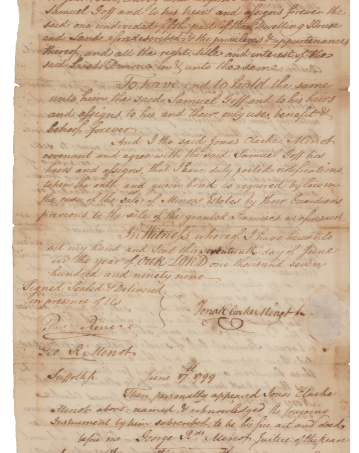 Samuel Goff and to his heirs and assigns forever the
said one undivided fifth part of the Dwelling House
and Lands so described & the privileges & appurtenances
thereof and all the right, title and interest of the
said in & unto the same.
To have and to hold the same
unto him the said Samuel Goff and to his heirs
and assigns, to his and their only use, benefit &
behoof forever.
And I the said Jonas Clarke Minot
covenant and agree with the said Samuel Goff his
heirs and assigns, that I have duly posted notifications,
taken the oath and given bond as required by law in
the case of the sale of Minors Estates by their Guardians
previous to the sale of the granted Premises as aforesaid.
In Witness whereof I have hereunto
set my hand and Seal this seventeenth day of June
in the year of OUR LORD one thousand seven
hundred and ninety nine
Signed Sealed & Delivered
in presence of Us
Jonas Clarke Minot
Revere
Geo. R. Minot
Suffolk ss. June 17th 1799
Then personally appeared Jonas Clarke
Minot above named & acknowledged the foregoing
Instrument by him subscribed to be his free act and deed
before me George Rds Minot Justice of the peace